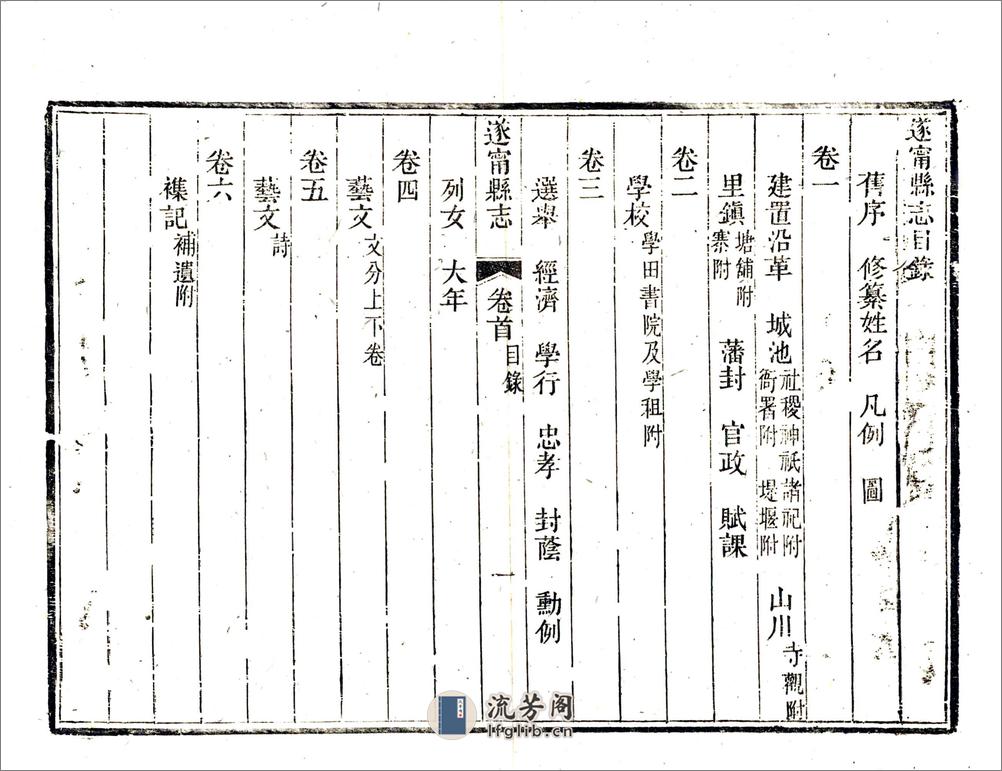 遂甯縣志目錄
舊序 修纂姓名 凡例 圖
卷一
建置沿革 城池 社稷神祇諸祀附 衙署附 堤堰附 山川 寺觀附
里鎮 塘舖附 寨附 藩封 官政 賦課
卷二
學校 學田書院及學租附
卷三
選舉 經濟 學行 忠孝 封蔭 勳例
遂甯縣志 卷首 目錄 一
列女 大年
卷四
藝文 文分上下卷
卷五
藝文 詩
卷六
襍記 補遺附
流芳阁
lfglib.cn